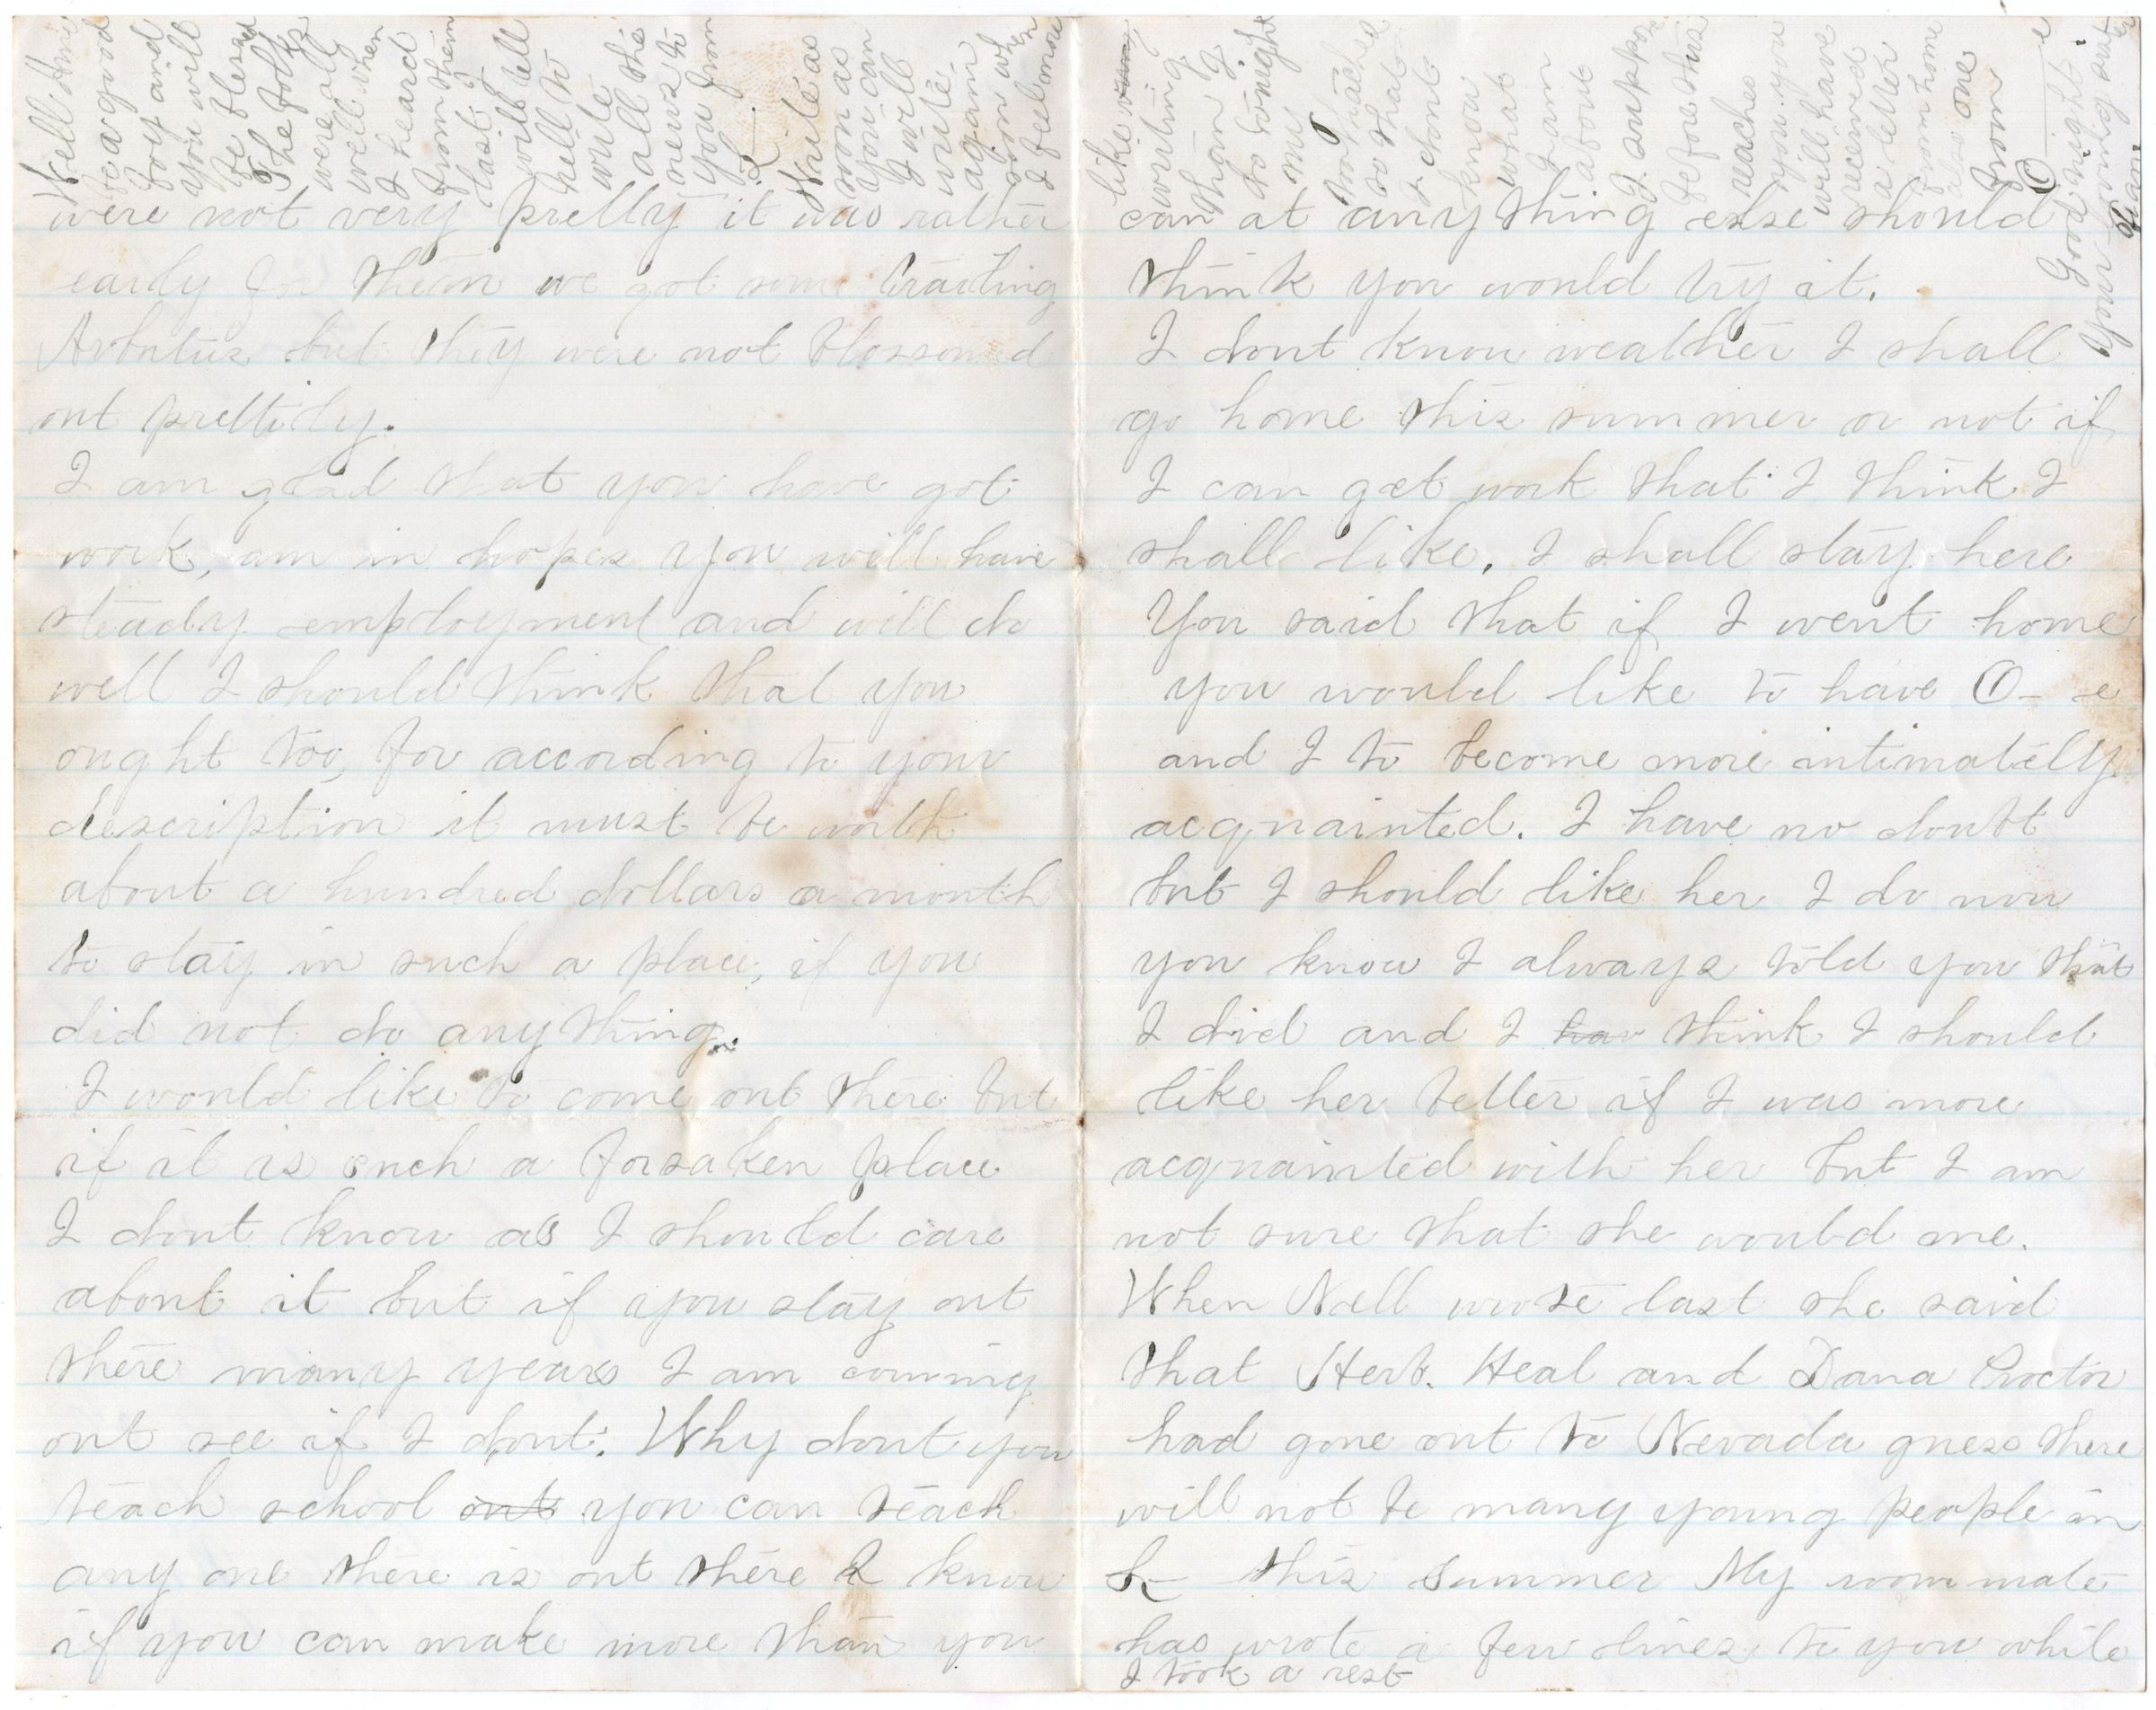 were not very pretty it was rather
early for them we got some trailing
Arbutus but they were not blossomed
out prettily.
I am glad that you have got
work, am in hopes you will have
steady employment and will do
well I should think that you
ought too, for according to your
description it must be worth
about a hundred dollars a month
to stay in such a place, if you
did not do anything.
I would like to come out there but
if it is such a forsaken place
I dont know as I should care
about it but if you stay out
there many years I am coming
out see if I dont. Why dont you
teach school out you can teach
any one there is out there I know
if you can make more than you
can at anything else should
think you would try it.
I dont know weather I shall
go home this summer or not if
I can get work that I think I
shall like, I shall stay here
You said that if I went home
you would like to have O- e
and I to become more intimatelly
acquainted. I have no doubt
but I should like her I do now
you know I always told you that
I did and I hav think I should
like her better if I was more
acquainted with her but I am
not sure that she would me.
When Nell wrote last she said
that Herb. Heal and Dana Proctor
had gone out to Nevada guess there
will not be many young people in
L- this summer My room mate
has wrote a few lines to you while
I took a rest
Well
be a good
boy and
you will
be blessed
The folks
were all
well when
I heard
from them
last I
will tell
Nell to
write
all the
news to
you from
L-
Write as
soon as
you can
I will
write
again
soon when
I feel more
like
writing
than I
do tonight
my
head aches
so that
I dont
know
what
I am
about
I suppose
before this
reaches
you you
will have
received
a letter
from home
also one
from
O- e
Good night
Your loving sister